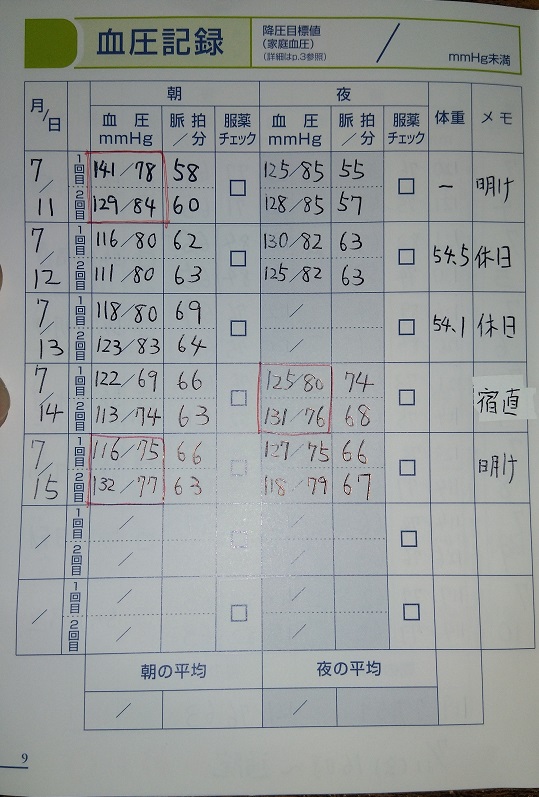 血圧記録
降圧目標値
(家庭血圧)
(詳細はp.3参照)
/
mmHg未満
月/日 朝 夜 体重 メモ
血圧 mmHg 脈拍/分 服薬チェック 血圧 mmHg 脈拍/分 服薬チェック
7/11 1回目 141/78 58 125/85 55 - 明け
2回目 129/84 60 128/85 57
7/12 1回目 116/80 62 130/82 63 54.5 休日
2回目 111/80 63 125/82 63
7/13 1回目 118/80 69 / 54.1 休日
2回目 123/83 64 /
7/14 1回目 122/69 66 125/80 74 宿直
2回目 113/74 63 131/76 68
7/15 1回目 116/75 66 127/75 66 明け
2回目 132/77 63 118/79 67
/ 1回目 / /
2回目 / /
/ 1回目 / /
2回目 / /
朝の平均 夜の平均
/ /
9